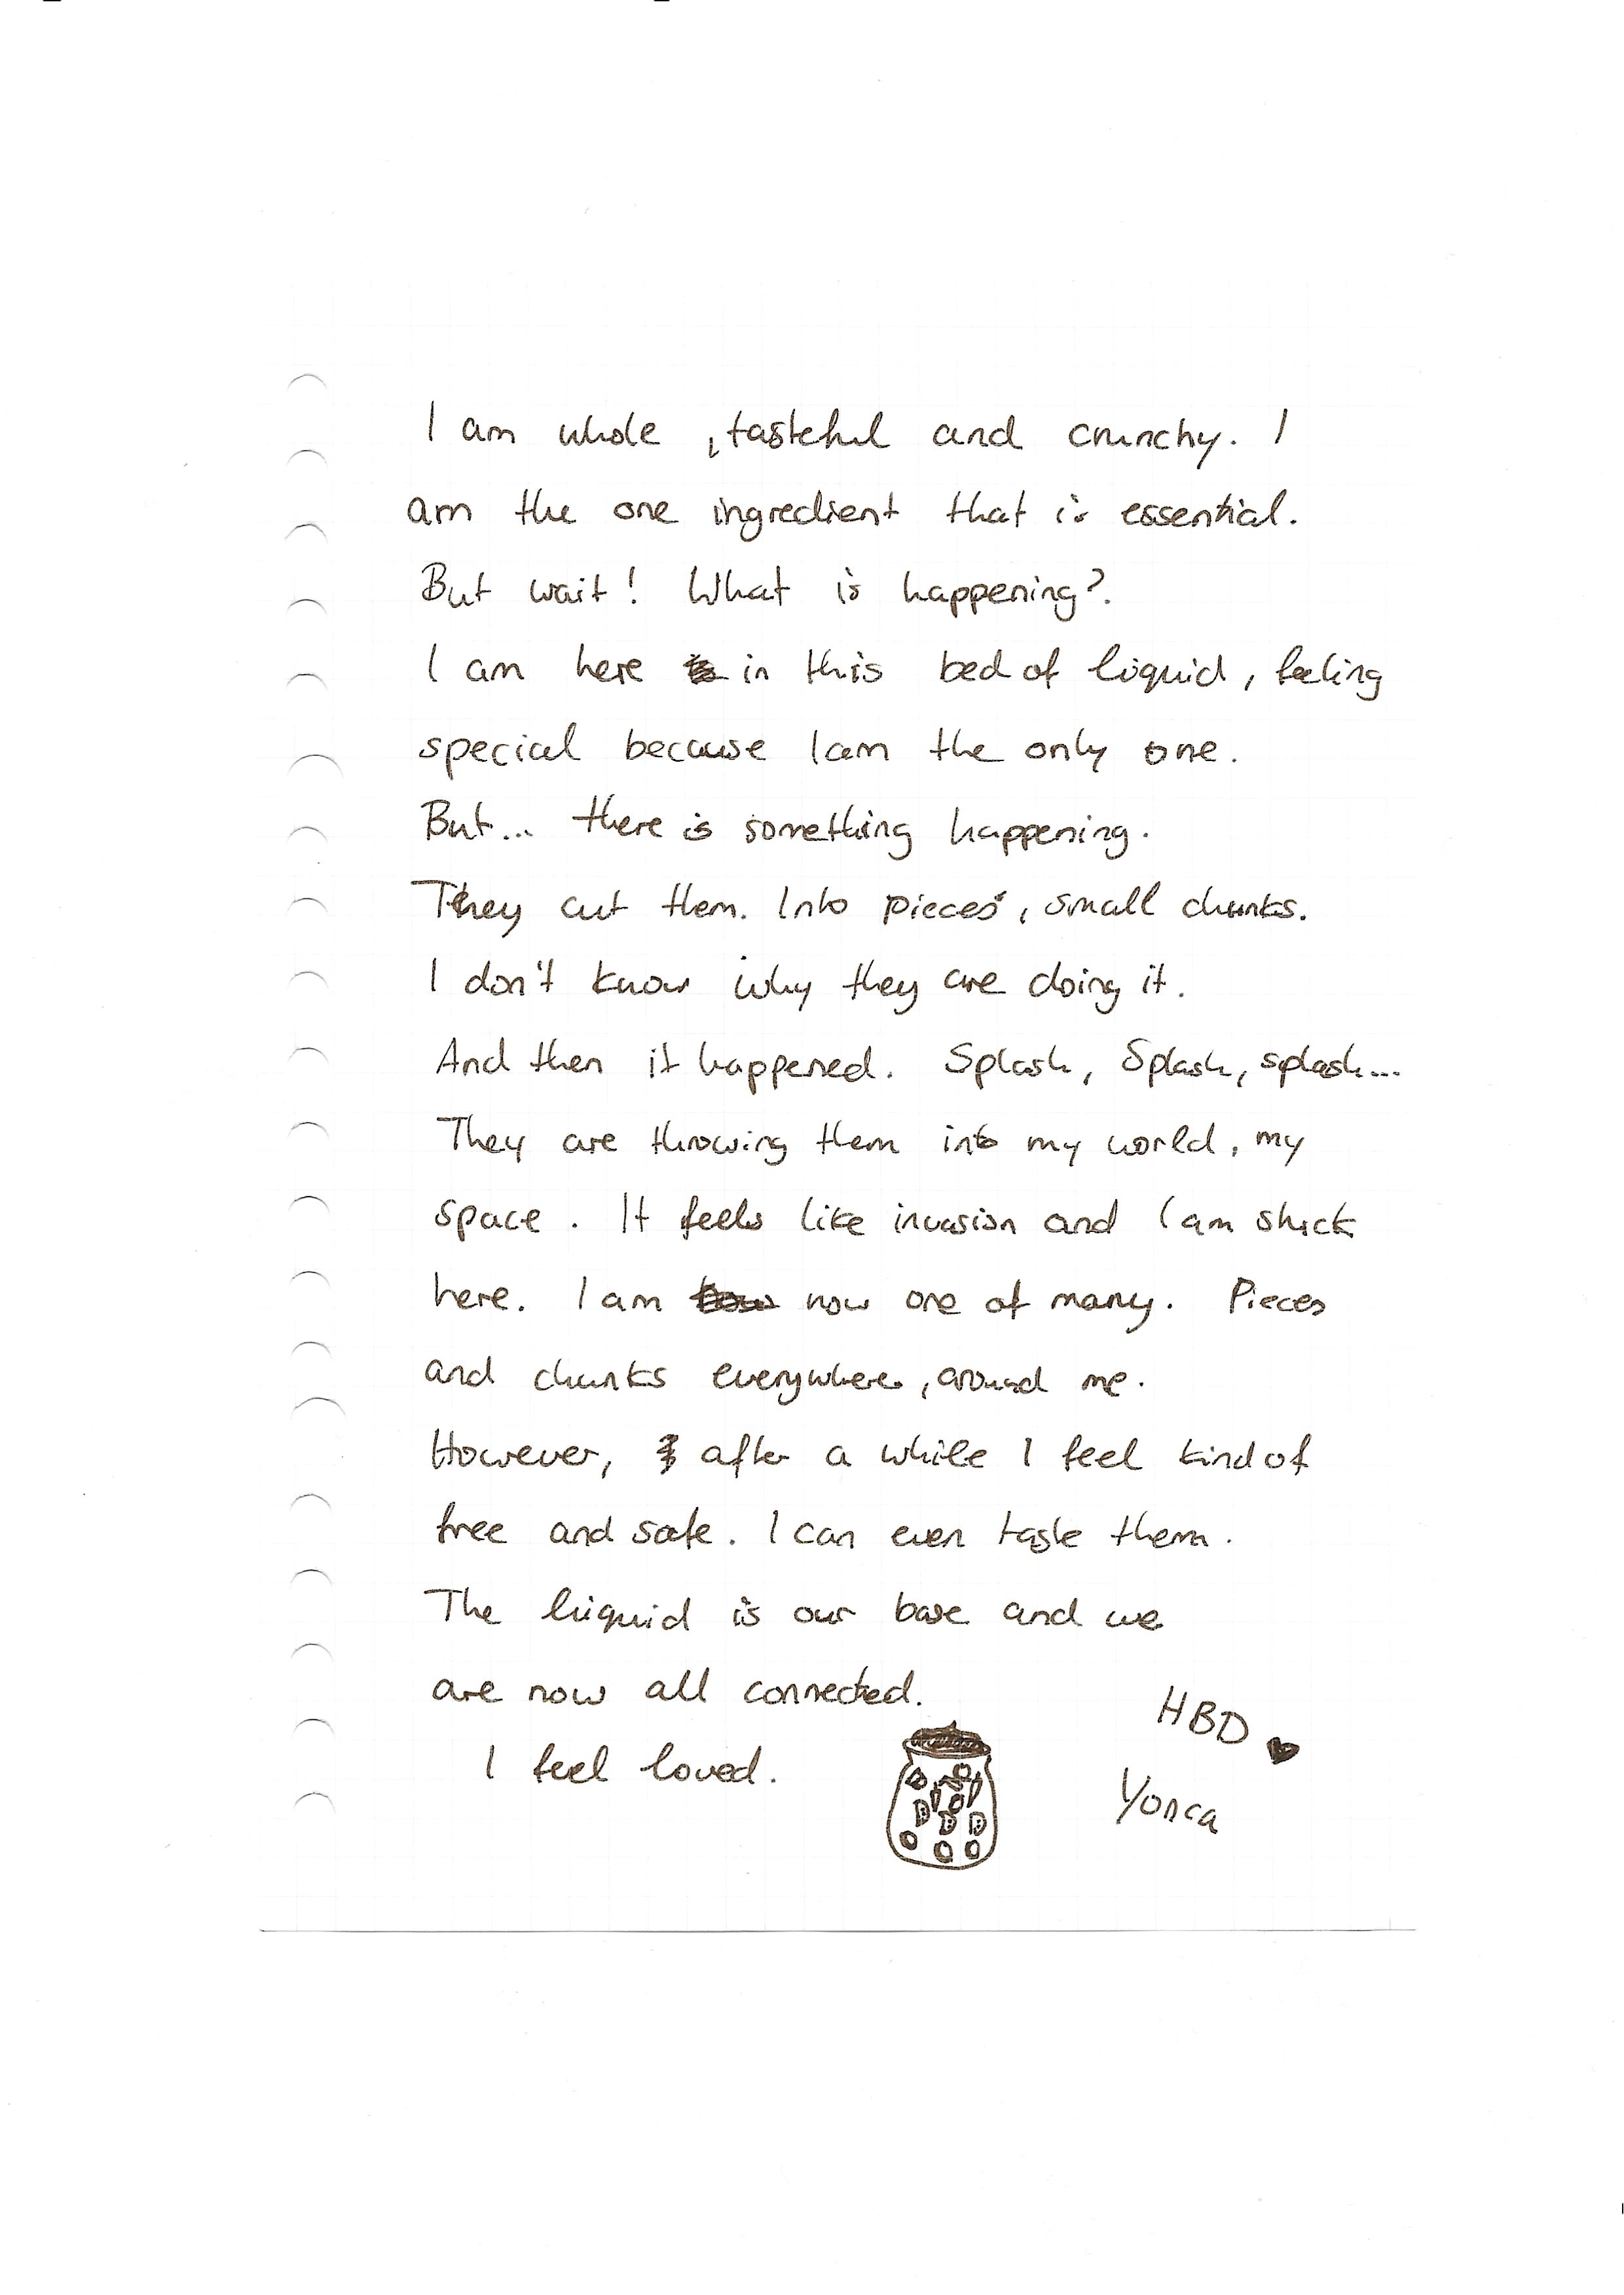 I am whole, tasteful and crunchy. I
am the one ingredient that is essential.
But wait! What is happening?
I am here in this bed of liquid, feeling
special because I am the only one.
But... there is something happening.
They cut them. Into pieces, small chunks.
I don't know why they are doing it.
And then it happened. Splash, Splash, splash...
They are throwing them into my world, my
space. It feels like invasion and I am stuck
here. I am now one of many. Pieces
and chunks everywhere, around me.
However, after a while I feel kind of
free and safe. I can even taste them.
The liquid is our base and we
are now all connected.
I feel loved.
HBD ♥
Yonca